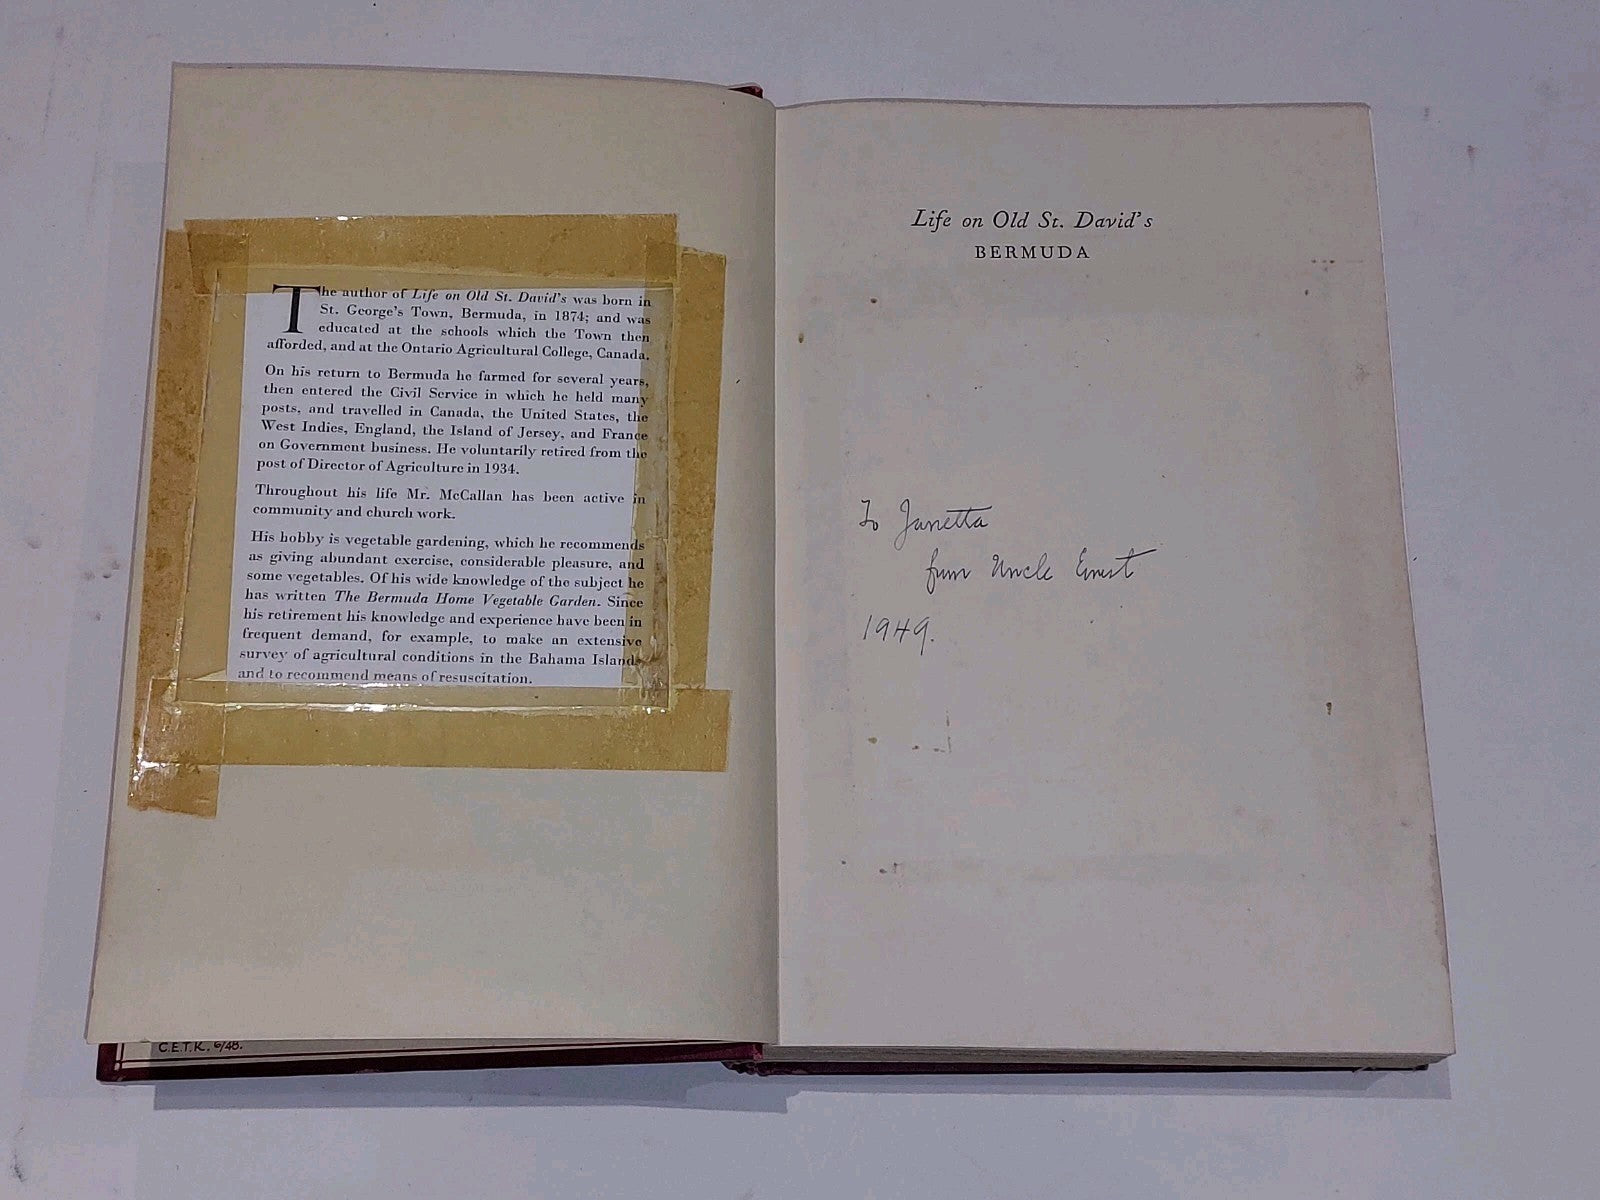 The author of Life on Old St. David's was born in
St. George's Town, Bermuda, in 1874; and was
educated at the schools which the Town then
afforded, and at the Ontario Agricultural College, Canada.
On his return to Bermuda he farmed for several years,
then entered the Civil Service in which he held many
posts, and travelled in Canada, the United States, the
West Indies, England, the Island of Jersey, and France
on Government business. He voluntarily retired from the
post of Director of Agriculture in 1934.
Throughout his life Mr. McCallan has been active in
community and church work.
His hobby is vegetable gardening, which he recommends
as giving abundant exercise, considerable pleasure, and
some vegetables. Of his wide knowledge of the subject he
has written The Bermuda Home Vegetable Garden. Since
his retirement his knowledge and experience have been in
frequent demand, for example, to make an extensive
survey of agricultural conditions in the Bahama Islands
and to recommend means of resuscitation.
C.E.T.K. 6/48.
Life on Old St. David's
BERMUDA
To Janetta
from Uncle Ernest
1949.